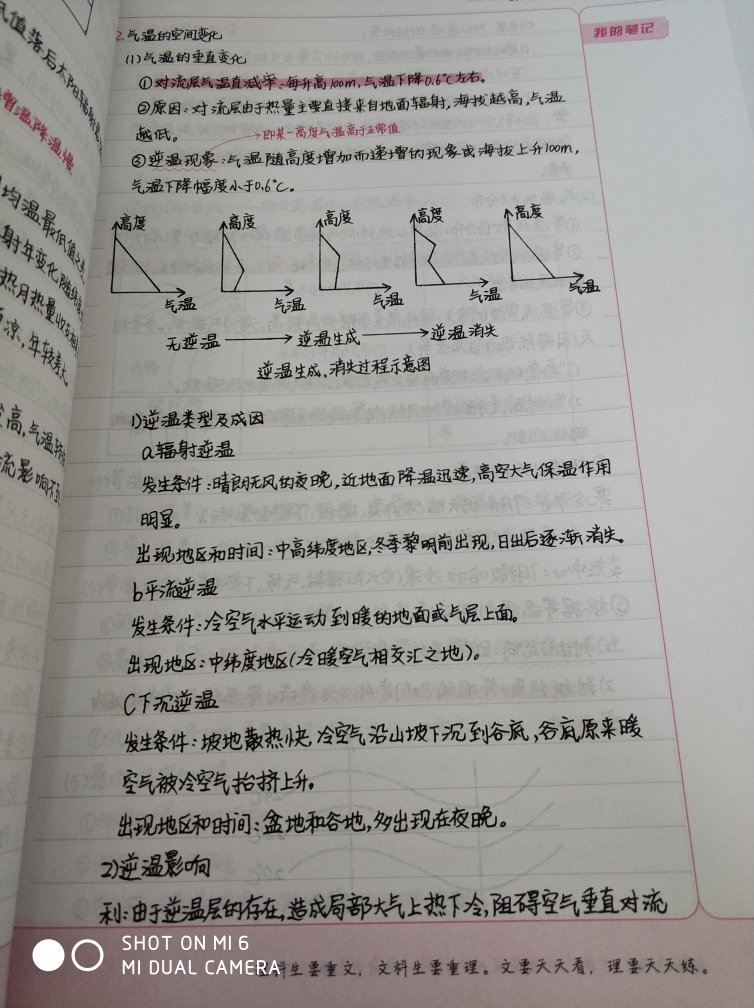 气值落后太阳辐射
增温降温慢
均温最低值之差
射年变化
热月热量收支
凉,年较差大
高,气温
流影响
我的笔记
2.气温的空间变化
(1)气温的垂直变化
①对流层气温直减率:每升高100m,气温下降0.6℃左右。
②原因:对流层由于热量主要直接来自地面辐射,海拔越高,气温
越低。
即某一高度气温高于正常值
③逆温现象:气温随高度增加而递增的现象或海拔上升100m,
气温下降幅度小于0.6℃。
高度 高度 高度 高度 高度
气温 气温 气温 气温 气温
无逆温 逆温生成 逆温消失
逆温生成、消失过程示意图
1)逆温类型及成因
a辐射逆温
发生条件:晴朗无风的夜晚,近地面降温迅速,高空大气保温作用
明显。
出现地区和时间:中高纬度地区,冬季黎明前出现,日出后逐渐消失。
b平流逆温
发生条件:冷空气水平运动到暖的地面或气层上面。
出现地区:中纬度地区(冷暖空气相交汇之地)。
C下沉逆温
发生条件:坡地散热快,冷空气沿山坡下沉到谷底,谷底原来暖
空气被冷空气抬挤上升。
出现地区和时间:盆地和谷地,多出现在夜晚。
2)逆温影响
利:由于逆温层的存在,造成局部大气上热下冷,阻碍空气垂直对流
科生要重文,文科生要重理。文要天天看,理要天天练。
SHOT ON MI 6
MI DUAL CAMERA